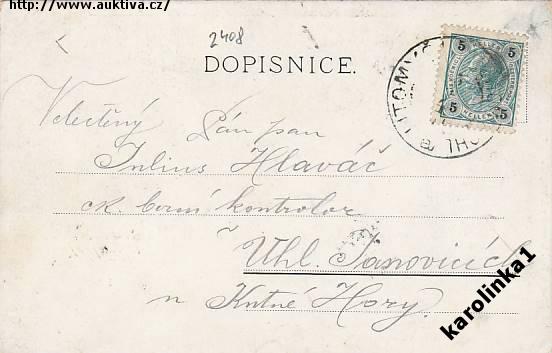 http://www.auktiva.cz/
2408
DOPISNICE.
5 HELLER 5
5 HELLER 5
LITOMYŠL
Velectěný Pán pan
Julius Hlaváč
ck. berní kontrolor
v Uhl. Janovicích
u Kutné Hory.
karolinka1